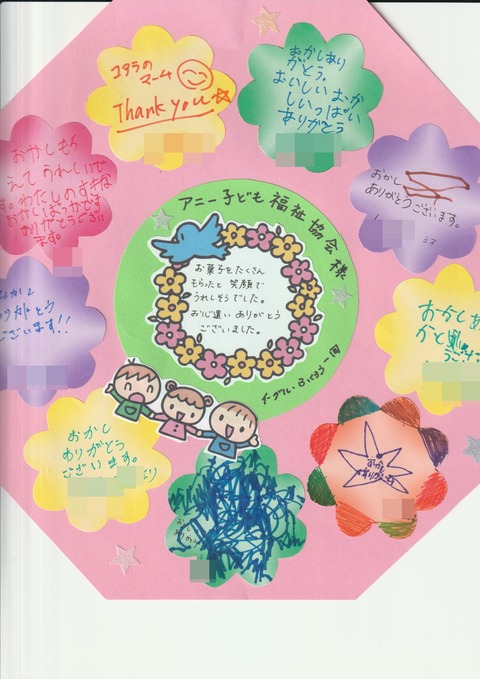 アニー子ども福祉協会様
お菓子をたくさん
もらったと 笑顔で
うれしそうでした。
お心遣い ありがとう
ございました。
コアラの
マーム
Thank you
おかしあり
がとう。
おいしい おか
しいっぱい
ありがとう
おかし
ありがとうございます。
おかしあ
がと
おかし
ありがとう
おかし
ありがとう
ございます。
ございます!!
おかしもら
えて うれしいで
す。わたしのすきな
ありがとうござい
ます。